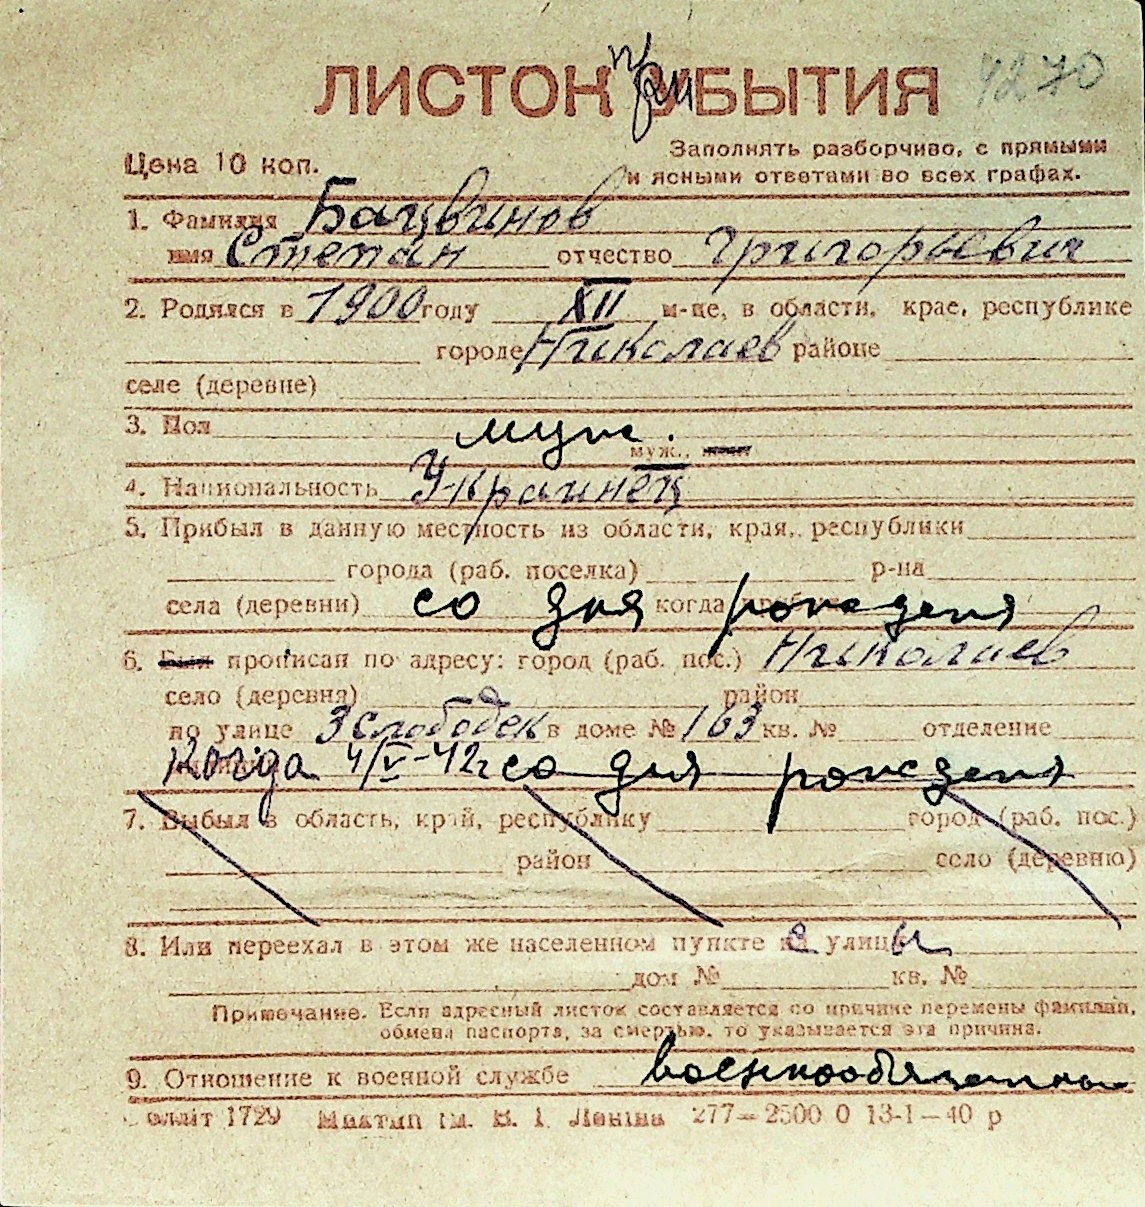 4270
ЛИСТОК при УБЫТИЯ
Цена 10 коп.
Заполнять разборчиво, с прямыми
и ясными ответами во всех графах.
1. Фамилия Бацвинов
имя Степан отчество Григорьевич
2. Родился в 1900 году XII м-це, в области, крае, республике
городе Николаев районе
селе (деревне)
3. Пол муж.
муж.,
4. Национальность Украинец
5. Прибыл в данную местность из области, края, республики
города (раб. поселка) р-на
села (деревни) со дня когда рождения
6. Был прописан по адресу: город (раб. пос.) Николаев
село (деревня) район
по улице 3 слободск в доме № 163 кв. № отделение
Когда 4/V-42г со дня рождения
7. Выбыл в область, край, республику город (раб. пос.)
район село (деревню)
8. Или переехал в этом же населенном пункте с улицы
дом № кв. №
Примечание. Если адресный листок составляется по причине перемены фамилии,
обмена паспорта, за смертью, то указывается эта причина.
9. Отношение к военной службе военнообязанный
оллiт 1729 Миктип iм. В. I. Ленiна 277—2500 0 13-I—40 р